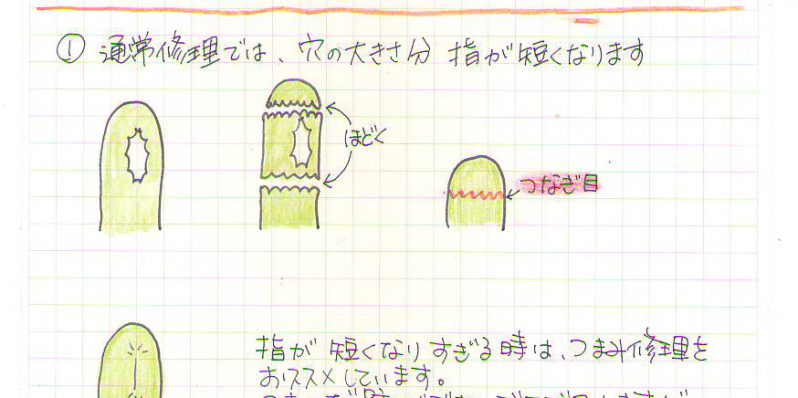 ① 通常修理では、穴の大きさ分 指が短くなります
ほどく
つなぎ目
指が短くなりすぎる時は、つまみ修理を
おススメしています。